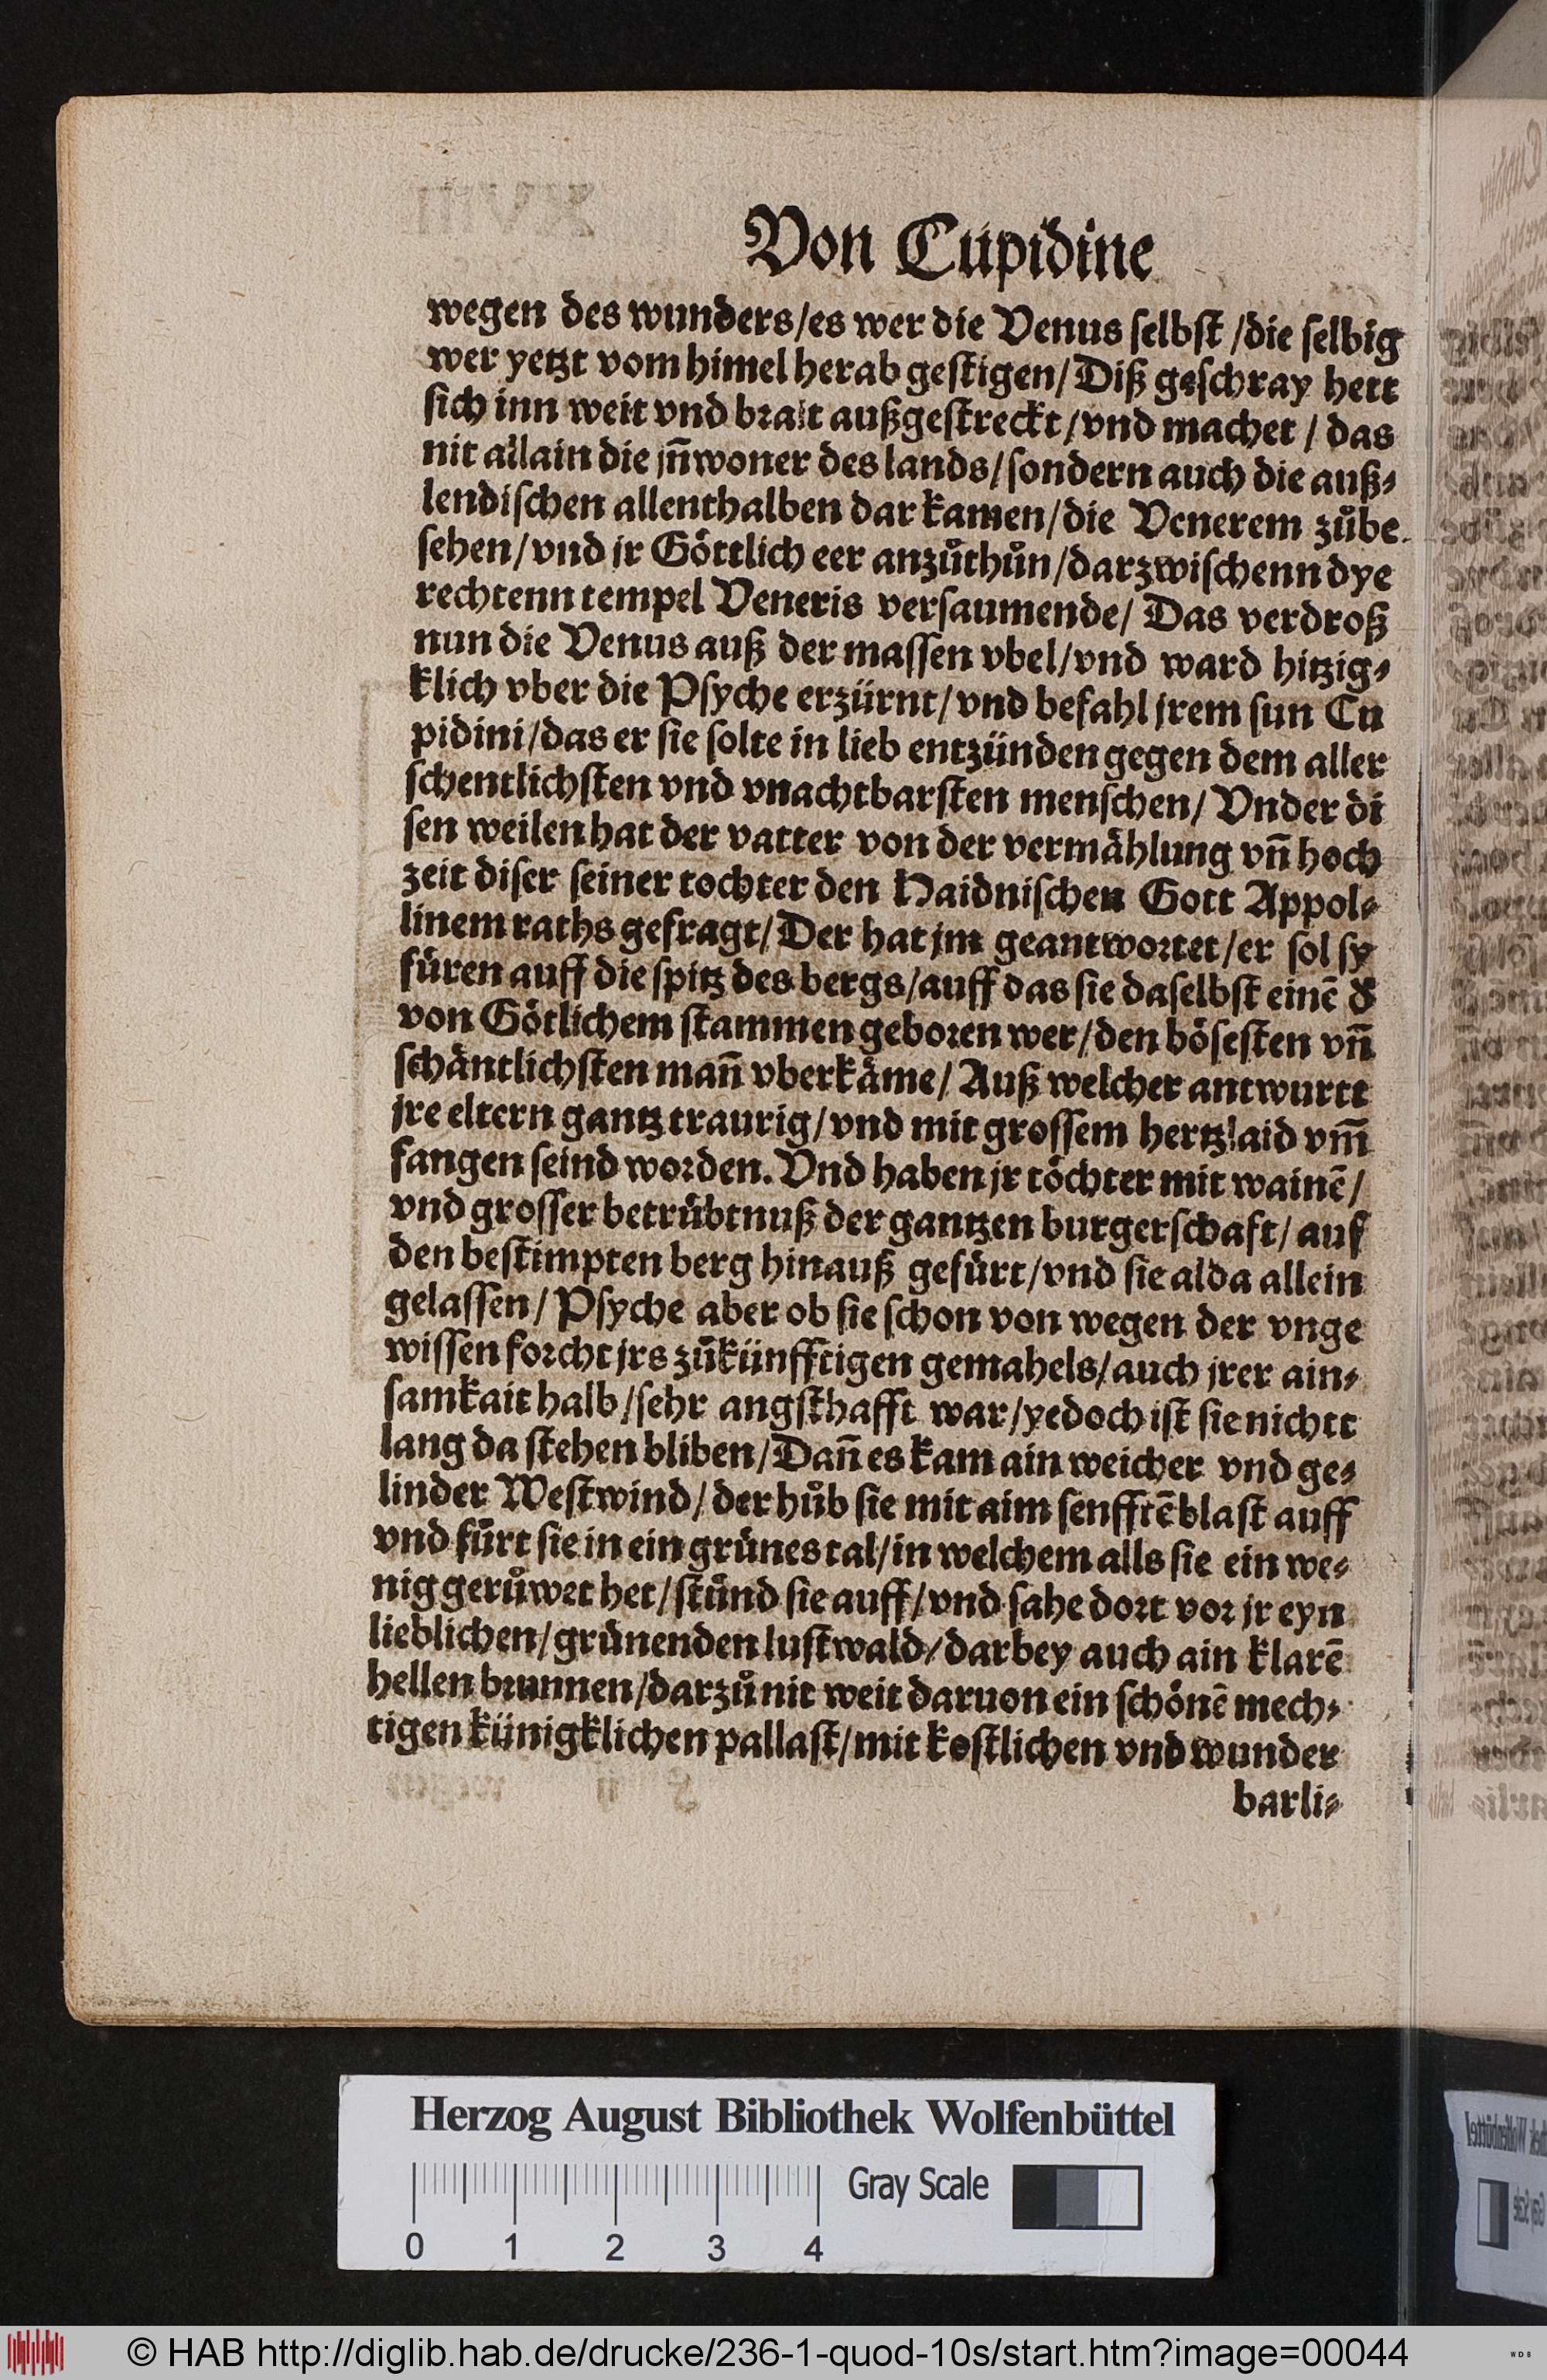 Von Cupidine
wegen des wunders/es wer die Venus ſelbſt /die ſelbig
wer yetzt vom himel herab geſtigen/Diß geſchray hett
ſich inn weit vnd brait außgeſtreckt/vnd machet / das
nit allain die jn̄woner des lands/ſondern auch die auß⸗
lendiſchen allenthalben dar kamen/die Venerem zůbe
ſehen/vnd jr Göttlich eer anzůthůn/darzwiſchenn dye
rechtenn tempel Veneris verſaumende/ Das verdroß
nun die Venus auß der maſſen vbel/vnd ward hitzig⸗
klich vber die Pſyche erzürnt/vnd befahl jrem ſun Cu
pidini/das er ſie ſolte in lieb entzünden gegen dem aller
ſchentlichſten vnd vnachtbarſten menſchen/ Vnder di
ſen weilen hat der vatter von der vermählung vn̄ hoch
zeit diſer ſeiner tochter den Haidniſchen Gott Appol⸗
linem raths gefragt/Der hat jm geantwortet/er ſol ſy
füren auff die ſpitz des bergs/auff das ſie daſelbſt einē d̕
von Götlichem ſtammen geboren wer/den böſeſten vn̄
ſchäntlichſten man̄ vberkäme/ Auß welcher antwurtt
jre eltern gantz traurig/vnd mit groſſem hertzlaid vm̄
fangen ſeind worden. Vnd haben jr töchter mit wainē/
vnd groſſer betrübtnuß der gantzen burgerſchaft/ auf
den beſtimpten berg hinauß gefürt/vnd ſie alda allein
gelaſſen/ Pſyche aber ob ſie ſchon von wegen der vnge
wiſſen forcht jrs zůkünfftigen gemahels/auch jrer ain⸗
ſamkait halb/ſehr angſthafft war/yedoch iſt ſie nichtt
lang da ſtehen bliben/Dan̄ es kam ain weicher vnd ge⸗
linder Weſtwind/der hůb ſie mit aim ſenfftē blaſt auff
vnd fürt ſie in ein grünes tal/in welchem alls ſie ein we⸗
nig gerůwet het/ſtůnd ſie auff/vnd ſahe dort vor jr eyn
lieblichen/grünenden luſtwald/darbey auch ain klarē
hellen brunnen/darzů nit weit daruon ein ſchönē mech⸗
tigen künigklichen pallaſt/mit koſtlichen vnd wunder
barli⸗
Herzog August Bibliothek Wolfenbüttel
Gray Scale
0 1 2 3 4
© HAB http://diglib.hab.de/drucke/236-1-quod-10s/start.htm?image=00044